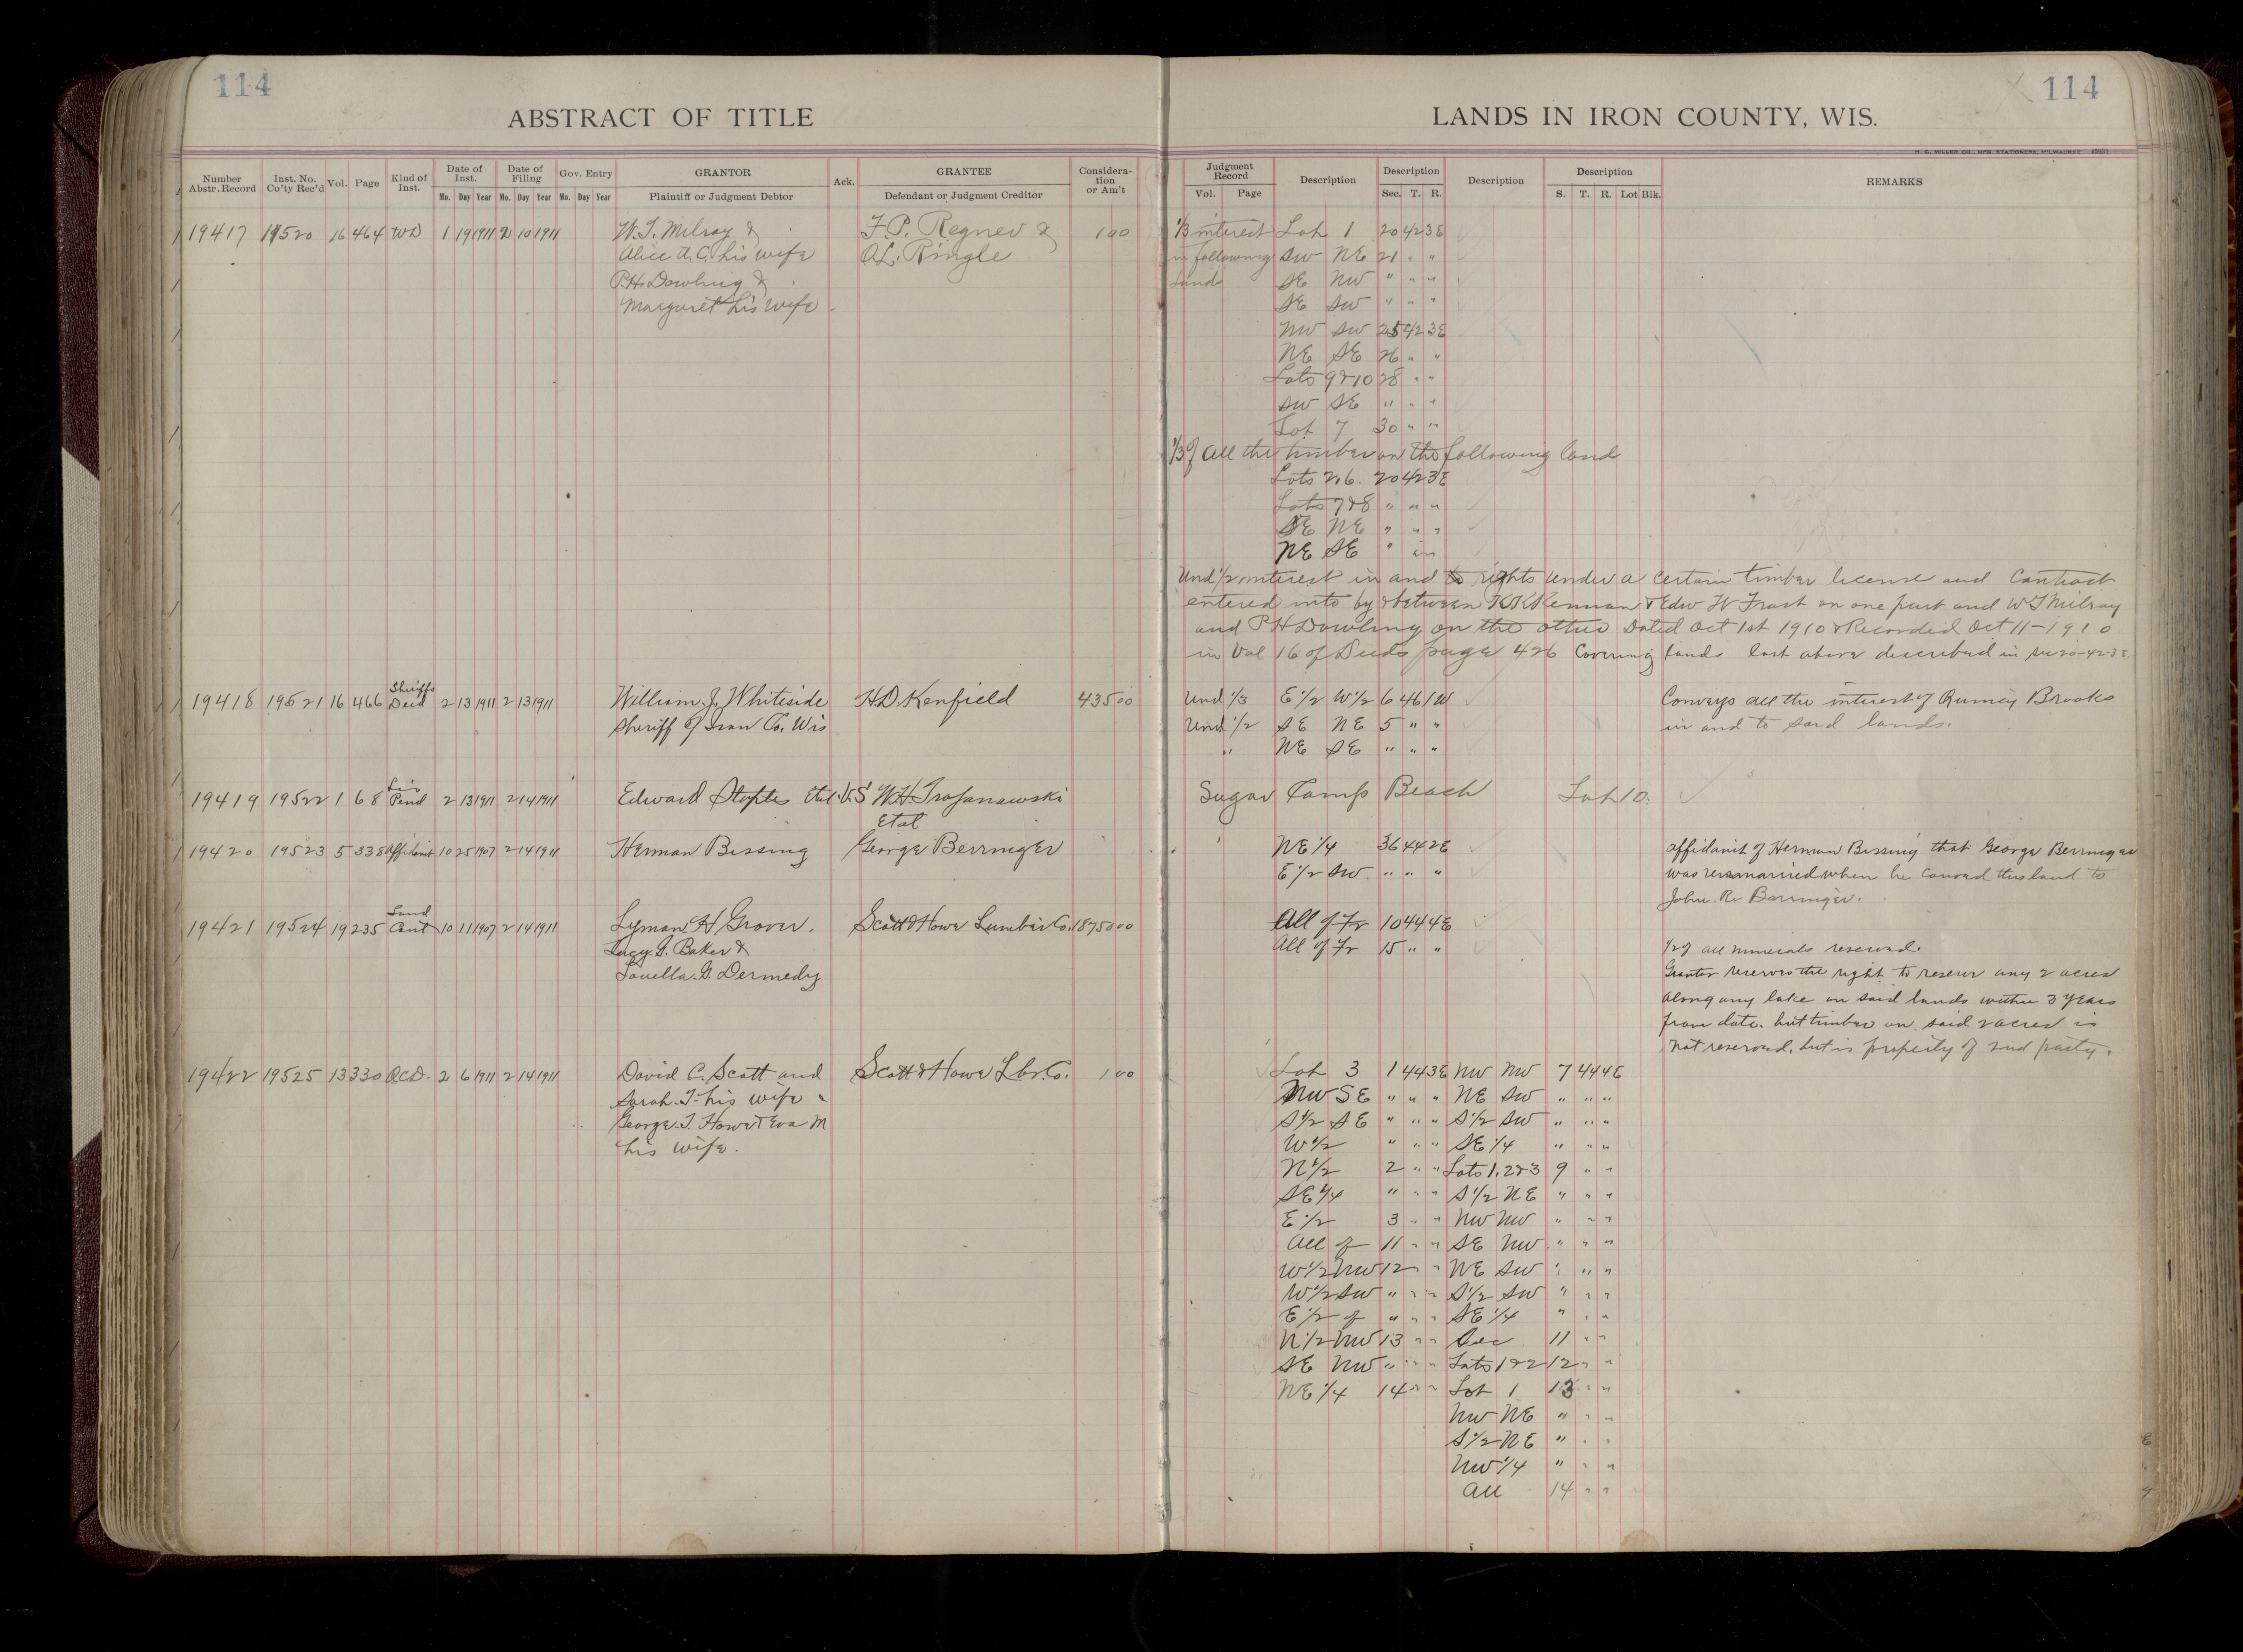 114
ABSTRACT OF TITLE
Number Abstr. Record | Inst. No. Co'ty Rec'd | Vol. | Page | Kind of Inst. | Date of Inst. Mo. Day Year | Date of Filing Mo. Day Year | Gov. Entry Mo. Day Year | GRANTOR Plaintiff or Judgment Debtor | Ack. | GRANTEE Defendant or Judgment Creditor | Consideration or Am't
19417 19520 16 464 WD 1 19 1911 2 10 1911 W.T. Milroy & F.P. Regner & 1 00
Alice A.C. his wife O.L. Ringle
P.H. Dowling &
Margaret his wife
19418 19521 16 466 Sheriffs Deed 2 13 1911 2 13 1911 William J. Whiteside H.D. Kenfield 435 00
Sheriff of Iron Co. Wis
19419 19522 1 68 Lis Pend 2 13 1911 2 14 1911 Edward Staples Etal VS W.H. Trojanawski
Etal
19420 19523 5 338 Affidavit 10 25 1907 2 14 1911 Herman Bissing George Berringer
19421 19524 19 235 Land Cont 10 1 1907 2 14 1911 Lyman H. Grover. Scott & Howe Lumber Co. 18750 00
Lucy G. Baker &
Louella G. Dermedy
19422 19525 13 330 QCD. 2 6 1911 2 14 1911 David C. Scott and Scott & Howe Lbr. Co. 1 00
Sarah T. his wife "
George T. Howe & Eva M
his wife.
114
LANDS IN IRON COUNTY, WIS.
H. G. MILLER CO., MFG. STATIONERS, MILWAUKEE
Judgment Record Vol. Page | Description | Description Sec. T. R. | Description | Description S. T. R. Lot Blk. | REMARKS
1/3 interest Lot 1 20 42 3E
in following SW NE 21 " "
lands SE NW " " "
SE SW " " "
NW SW 25 42 3E
NE SE 26 " "
Lots 9 & 10 28 " "
SW SE " " "
Lot 7 30 " "
1/3 of all the timber on the following land
Lots 2,6. 20 42 3E
Lots 7 & 8 " " "
SE NE " " "
NE SE " " "
Und 1/2 interest in and to rights under a certain timber license and contract
entered into by & between K K Kennan & Edw W Frost on one part and W T Milroy
and P H Dowling on the other Dated Oct 1st 1910 & Recorded Oct 11-1910
in Vol 16 of Deeds page 426 covering lands last above described in Sec 20-42-3E
Und 1/3 E 1/2 W 1/2 6 46 1W Conveys all the interest of Brooks
Und 1/2 SE NE 5 " " in and to said lands.
" NE SE " " "
Sugar Camp Beach Lot 10
NE 1/4 36 44 2E affidavit of Herman Bissing that George Berringer
E 1/2 SW " " " was unmarried when he conved this land to
John R. Barringer.
All of Fr 10 44 4E
All of Fr 15 " " 1/2 of all minerals reserved.
Grantor reserves the right to reserve any 2 acres
along any lake on said lands within 3 years
from date. but timber on said 2 acres is
not reserved, but is property of 2nd party.
Lot 3 1 44 3E NW NW 7 44 4E
NW SE " " " NE SW " " "
S 1/2 SE " " " S 1/2 SW " " "
W 1/2 " " " SE 1/4 " " "
N 1/2 2 " " Lots 1, 2 & 3 9 " "
SE 1/4 " " " S 1/2 NE " " "
E 1/2 3 " " NW NW " " "
All of 11 " " SE NW " " "
W 1/2 NW 12 " " NE SW " " "
W 1/2 SW " " " S 1/2 SW " " "
E 1/2 of " " " SE 1/4 " " "
N 1/2 NW 13 " " Sec 11 " "
SE NW " " " Lots 1 & 2 12 " "
NE 1/4 14 " " Lot 1 13 " "
NW NE " " "
S 1/2 NE " " "
NW 1/4 " " "
All 14 " "